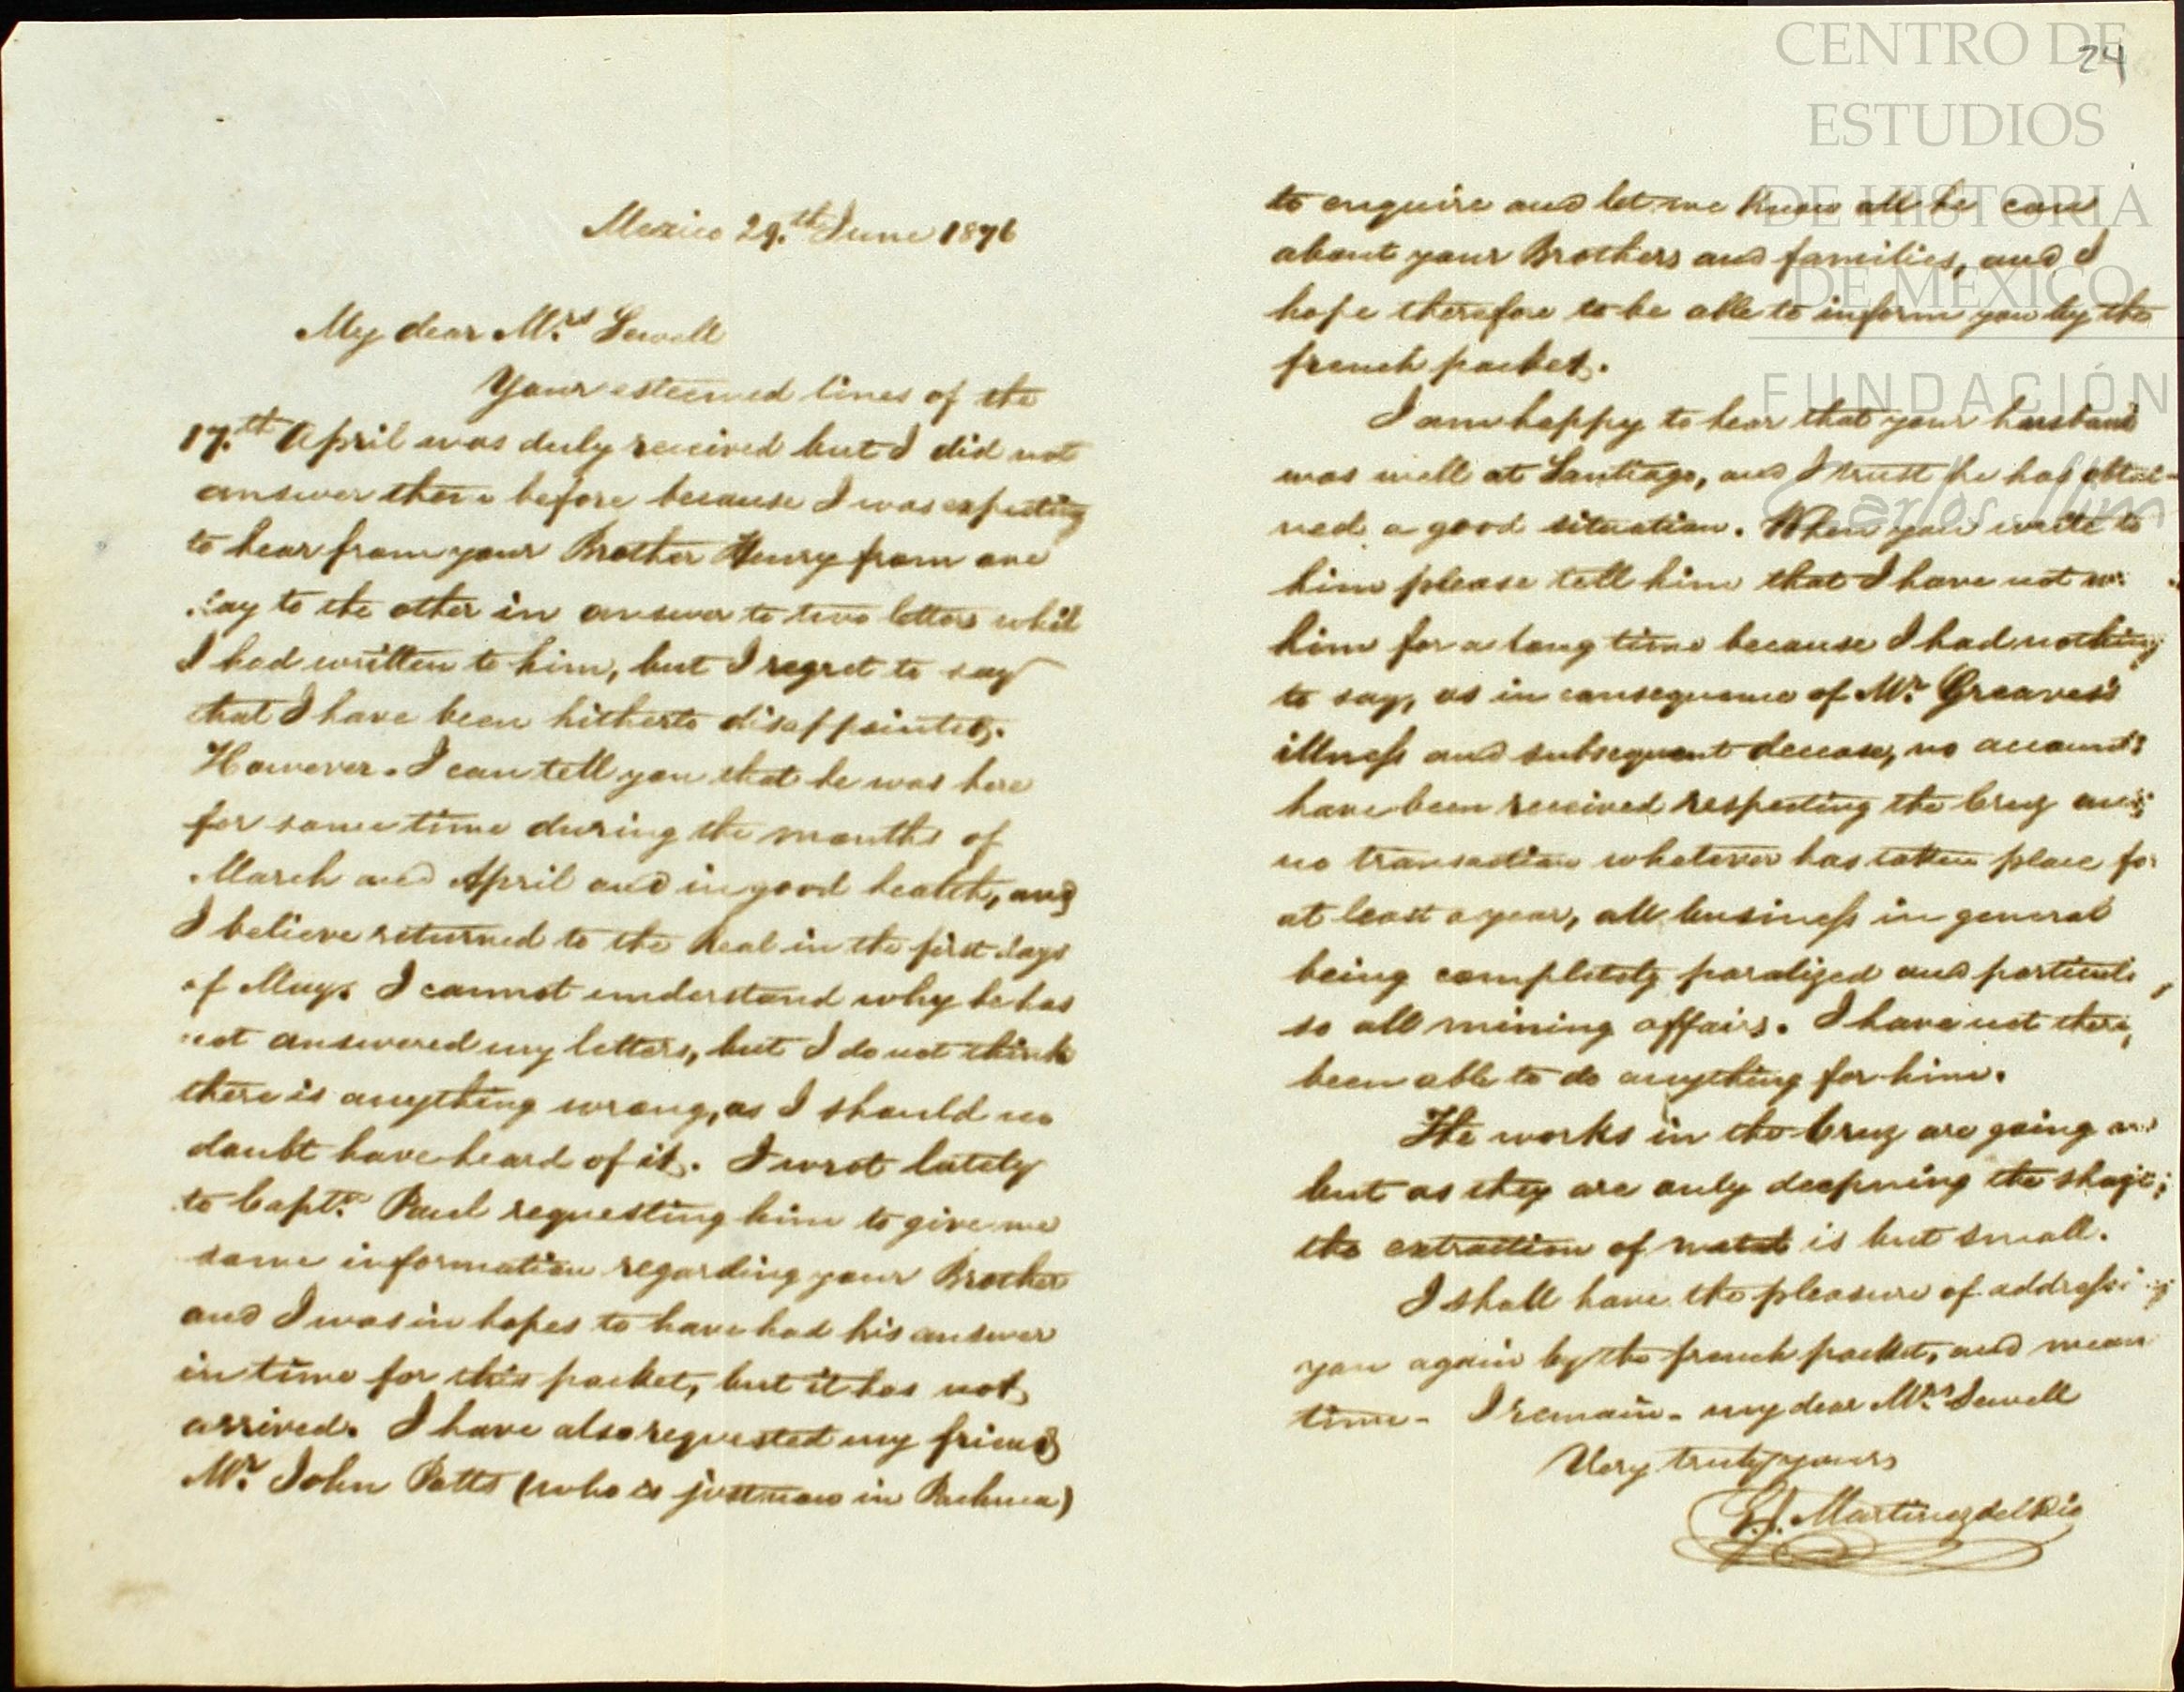 Mexico 29.th June 1876
My dear Mrs. Sewell
Your esteemed lines of the
17.th April was duly received but I did not
answer them before because I was expecting
to hear from your Brother Henry from one
day to the other in answer to two letters which
I had written to him, but I regret to say
that I have been hitherto disappointed.
However. I can tell you that he was here
for some time during the months of
March and April and in good health, and
I believe returned to the Real in the first days
of May. I cannot understand why he has
not answered my letters, but I do not think
there is anything wrong, as I should no
doubt have heard of it. I wrot lately
to Captn. Paul requesting him to give me
some information regarding your Brother
and I was in hopes to have had his answer
in time for this packet, but it has not
arrived. I have also requested my friend
Mr. John Potts (who is just now in Pachuca)
24
to enquire and let me know all he can
about your Brothers and families, and I
hope therefore to be able to inform you by the
french packet.
I am happy to hear that your husband
was well at Santiago, and I trust he has obtai-
ned a good situation. When you write to
him please tell him that I have not
him for a long time because I had nothing
to say, as in consequence of Mr. Greaves's
illness and subsequent decease, no accounts
have been received respecting the Cruz and
no transaction whatever has taken place for
at least a year, all business in general
being completely paralized and particul
so all mining affairs. I have not there
been able to do anything for him.
The works in the Cruz are going on
but as they are only deepning the shaft
the extraction of metal is but small.
I shall have the pleasure of addressing
you again by the french packet, and mean
time - I remain - my dear Mrs. Sewell
Very truly yours
Martinez del Rio
CENTRO DE
ESTUDIOS
DE HISTORIA
DE MEXICO
FUNDACIÓN
Carlos Slim